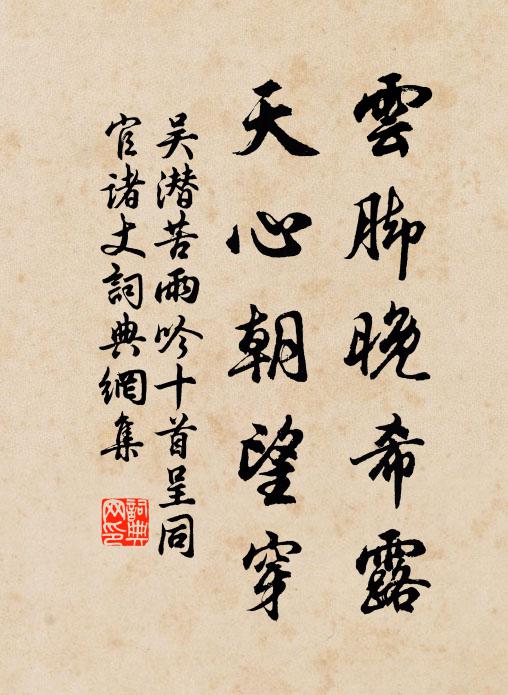 雲脚晚希露
天心朝望穿
吴潜苦雨吟十首呈同
官诸丈詞典網集
詞典
网印